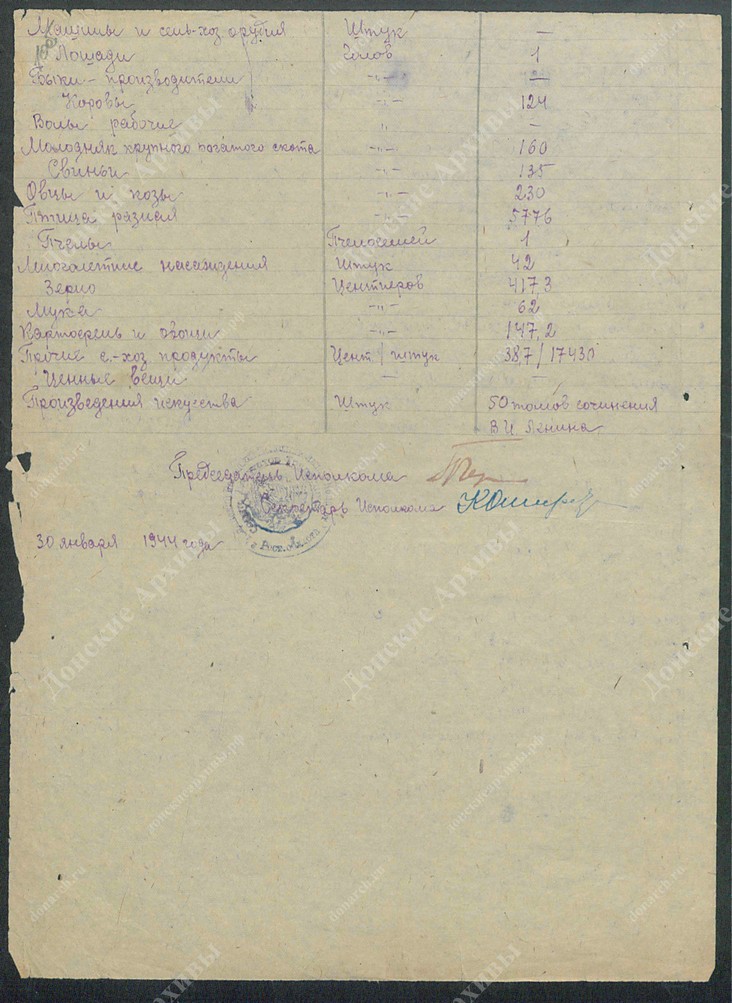 Машины и сель-хоз орудия Штук —
Лошади Голов 1
Быки-производители -„- —
Коровы -„- 124
Волы рабочие „ —
Молодняк крупного рогатого скота -„- 160
Свиньи -„- 135
Овцы и козы -„- 230
Птица разная -„- 5776
Пчелы Пчелосемей 1
Многолетние насаждения Штук 42
Зерно Центнеров 4173
Мука -„- 62
Картофель и овощи -„- 147,2
Прочие с.-хоз продукты Цент/штук 387/17430
Ценные вещи — —
Произведения искусства Штук 50 томов сочинения
В И Ленина
Председатель Исполкома
Секретарь Исполкома
30 января 1944 года
Донские Архивы
донскиеархивы.рф
donarch.ru